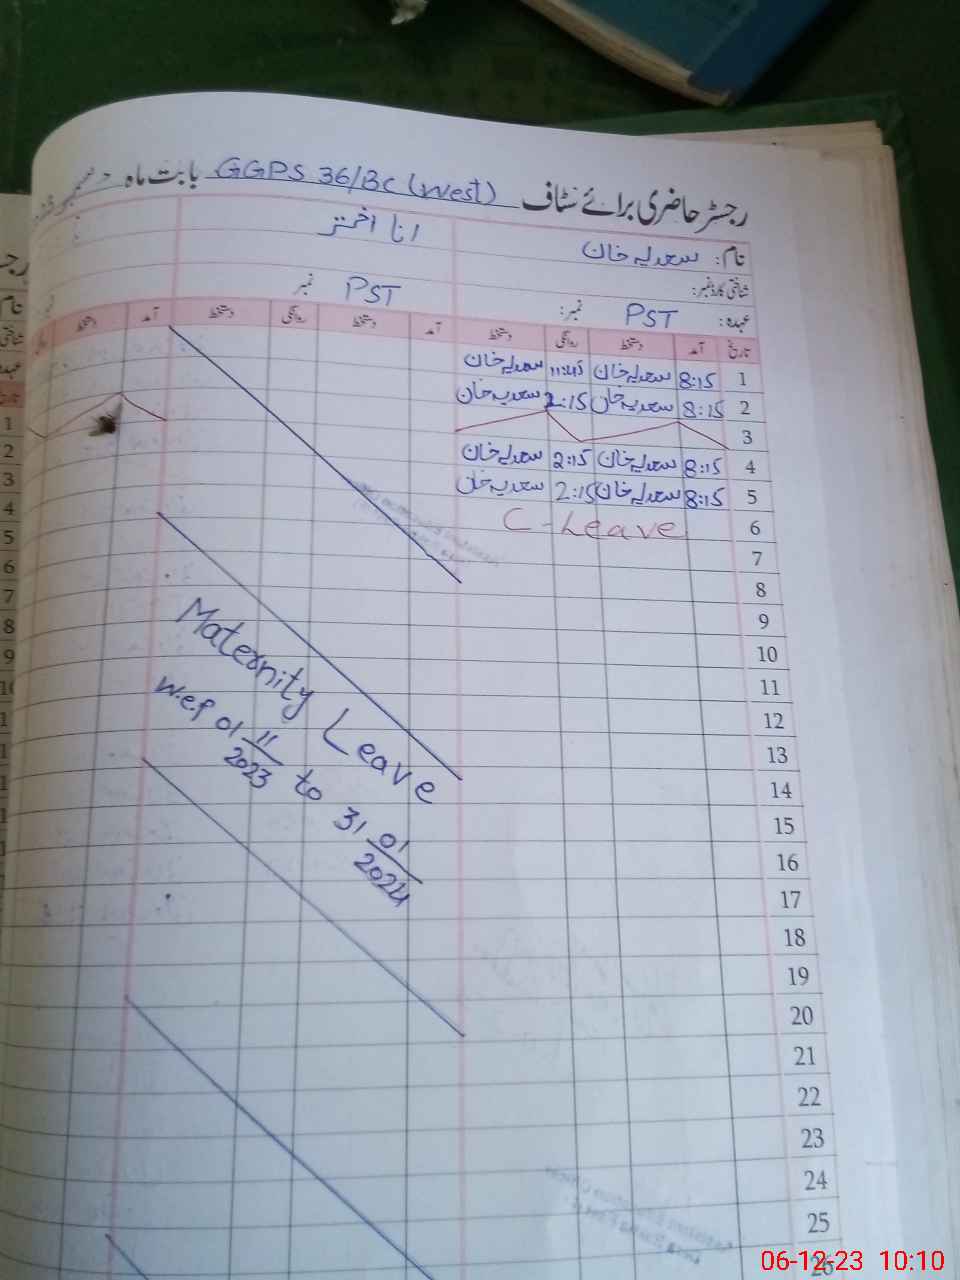 رجسٹر حاضری برائے سٹاف GGPS 36/BC (West) بابت ماہ دسمبر
نام: سعدیہ خان
شناختی کارڈ نمبر:
عہدہ: PST نمبر: PST نمبر
تاریخ آمد دستخط روانگی دستخط آمد دستخط روانگی دستخط آمد دستخط
1 8:15 سعدیہ خان 11:45 سعدیہ خان
2 8:15 سعدیہ خان 2:15 سعدیہ خان
3
4 8:15 سعدیہ خان 2:15 سعدیہ خان
5 8:15 سعدیہ خان 2:15 سعدیہ خان
6 C-Leave
7
8
9
10
11
12
13
14
15
16
17
18
19
20
21
22
23
24
25
26
Maternity Leave
w.e.f 01 11/2023 to 31 01/2024
1
2
3
4
5
6
7
8
9
06-12-23 10:10